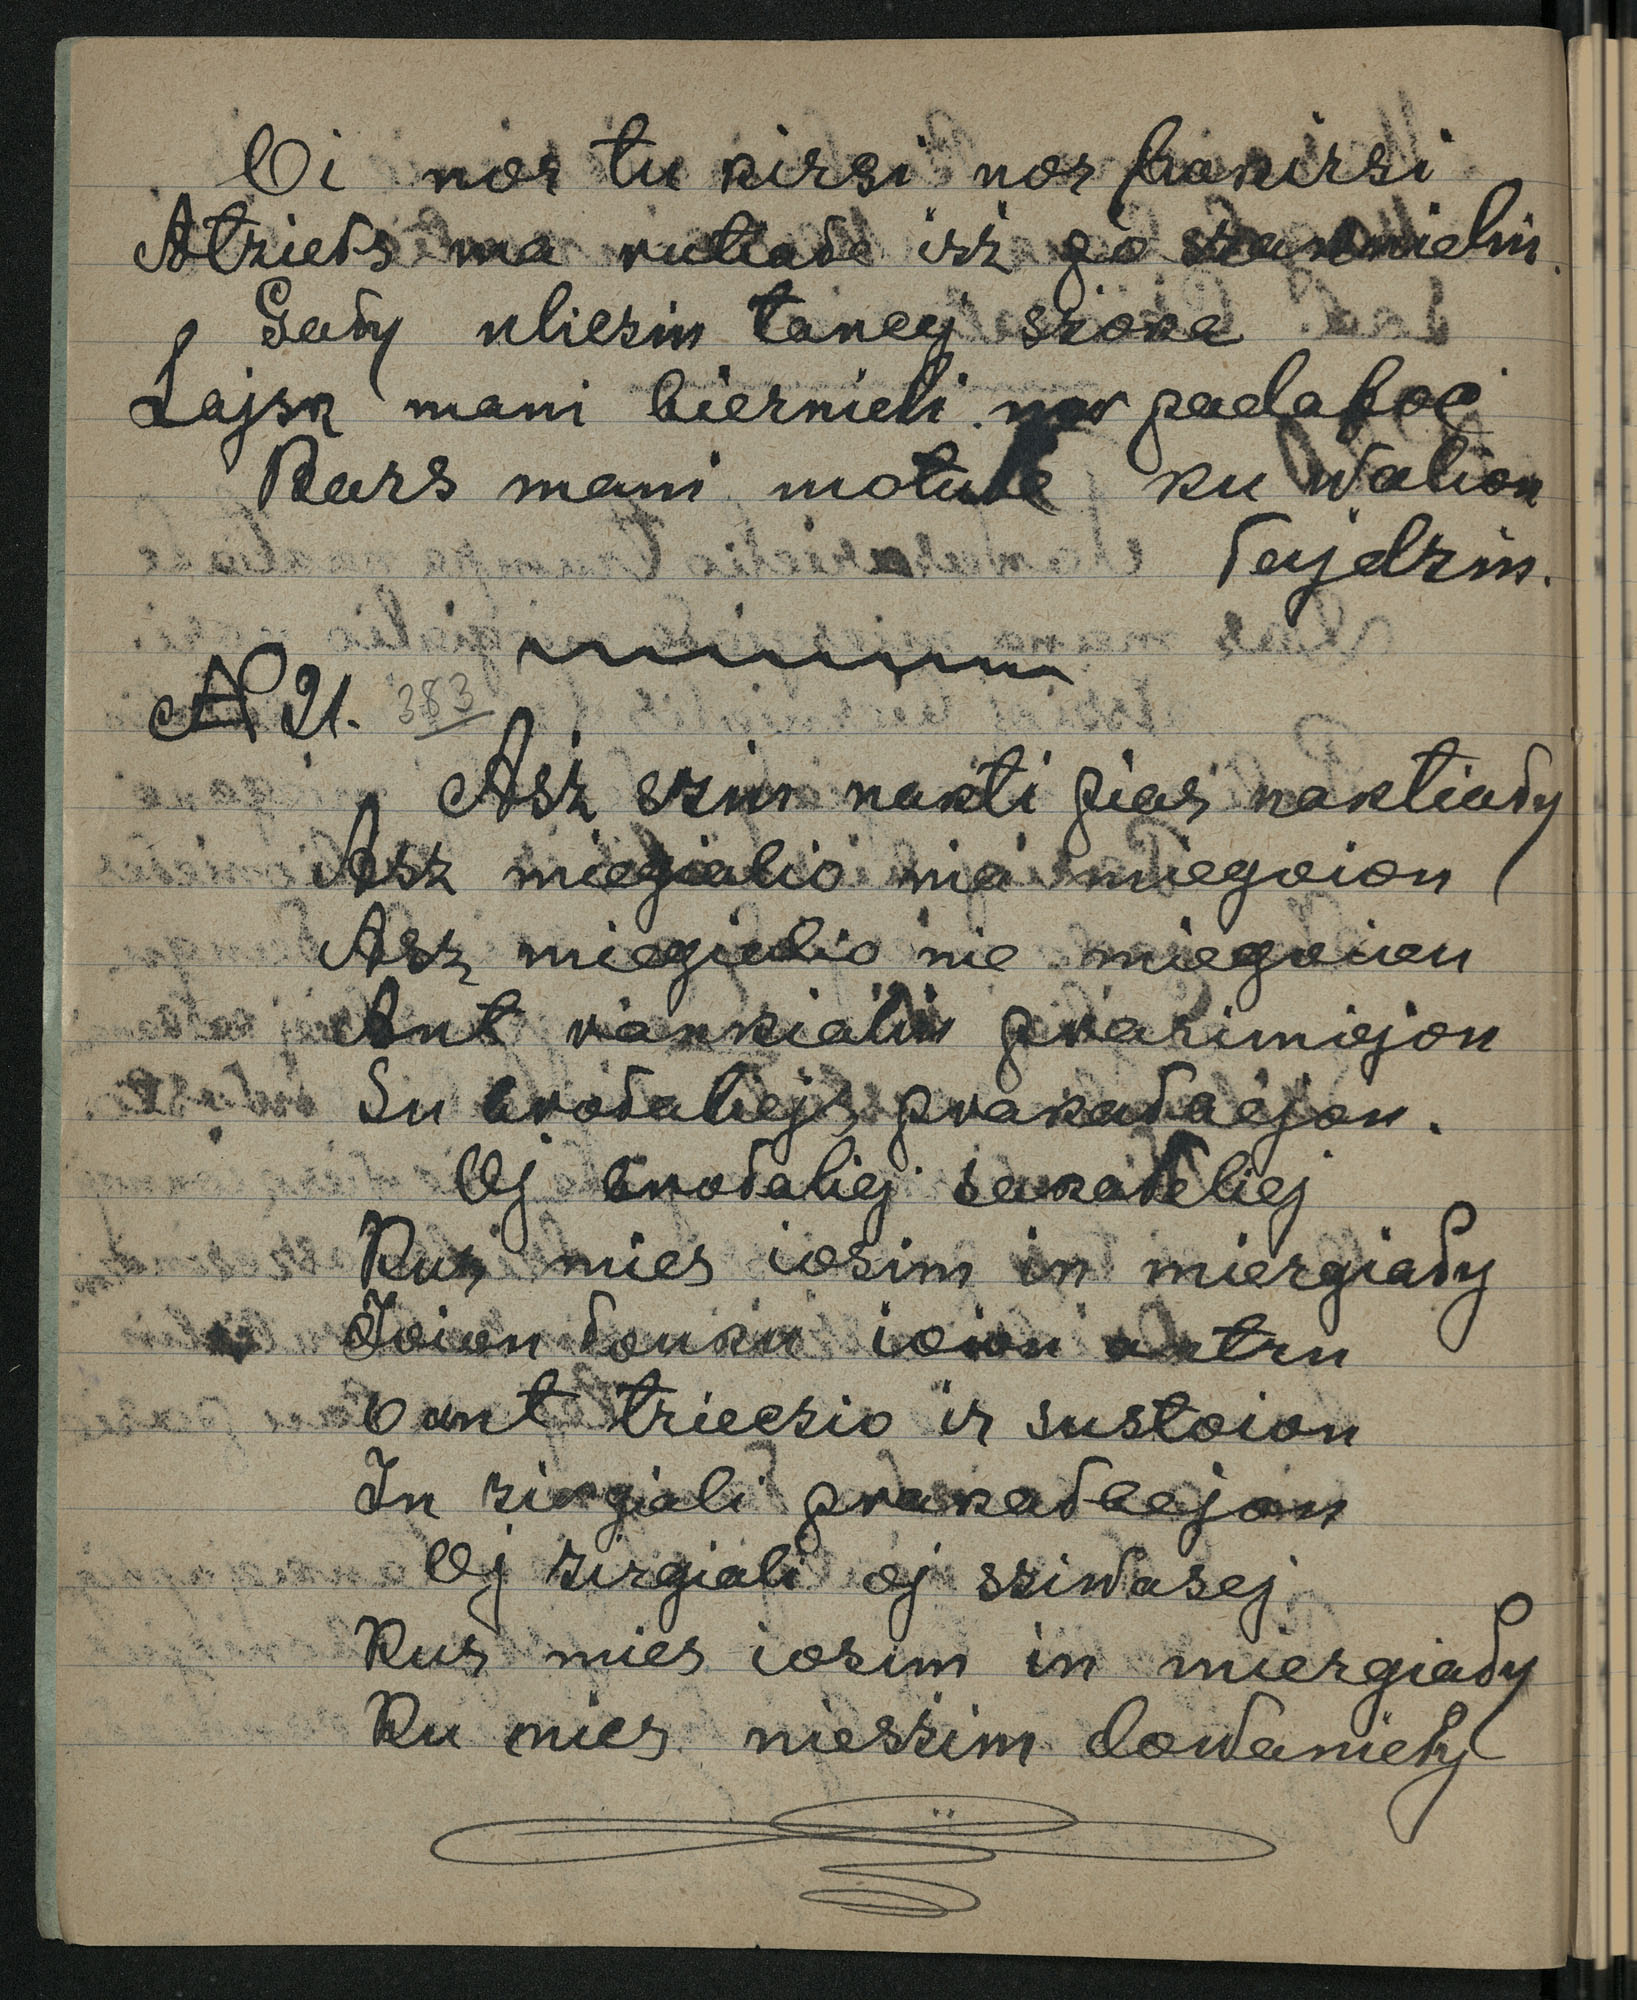 Oi nor tu kirsi nor pakirsi
Atzieds ma rutiada isz po szaknielin.
Gady uliezin taney szoka
Lajsk mani biernieli nor padaboc
Kars mani motule ku walion
dajdzin.
N 21. 383
Asz szin nakti pias naktiady
Asz miegialio nie miegoion
Asz miegialio nie miegoion
Ant rankialin prarimojon
Su brodaliejs prakadbejon.
Oj brodaliej sakadeliej
Kus mies iosim in miergiady
Joion louku ioion antru
O ant trieczio ir sustoion
In zirgiali prakadbejon
Oj zirgiali oj sziwasej
Kus mies iosim in miergiady
Ku mies nieszim dowaniely